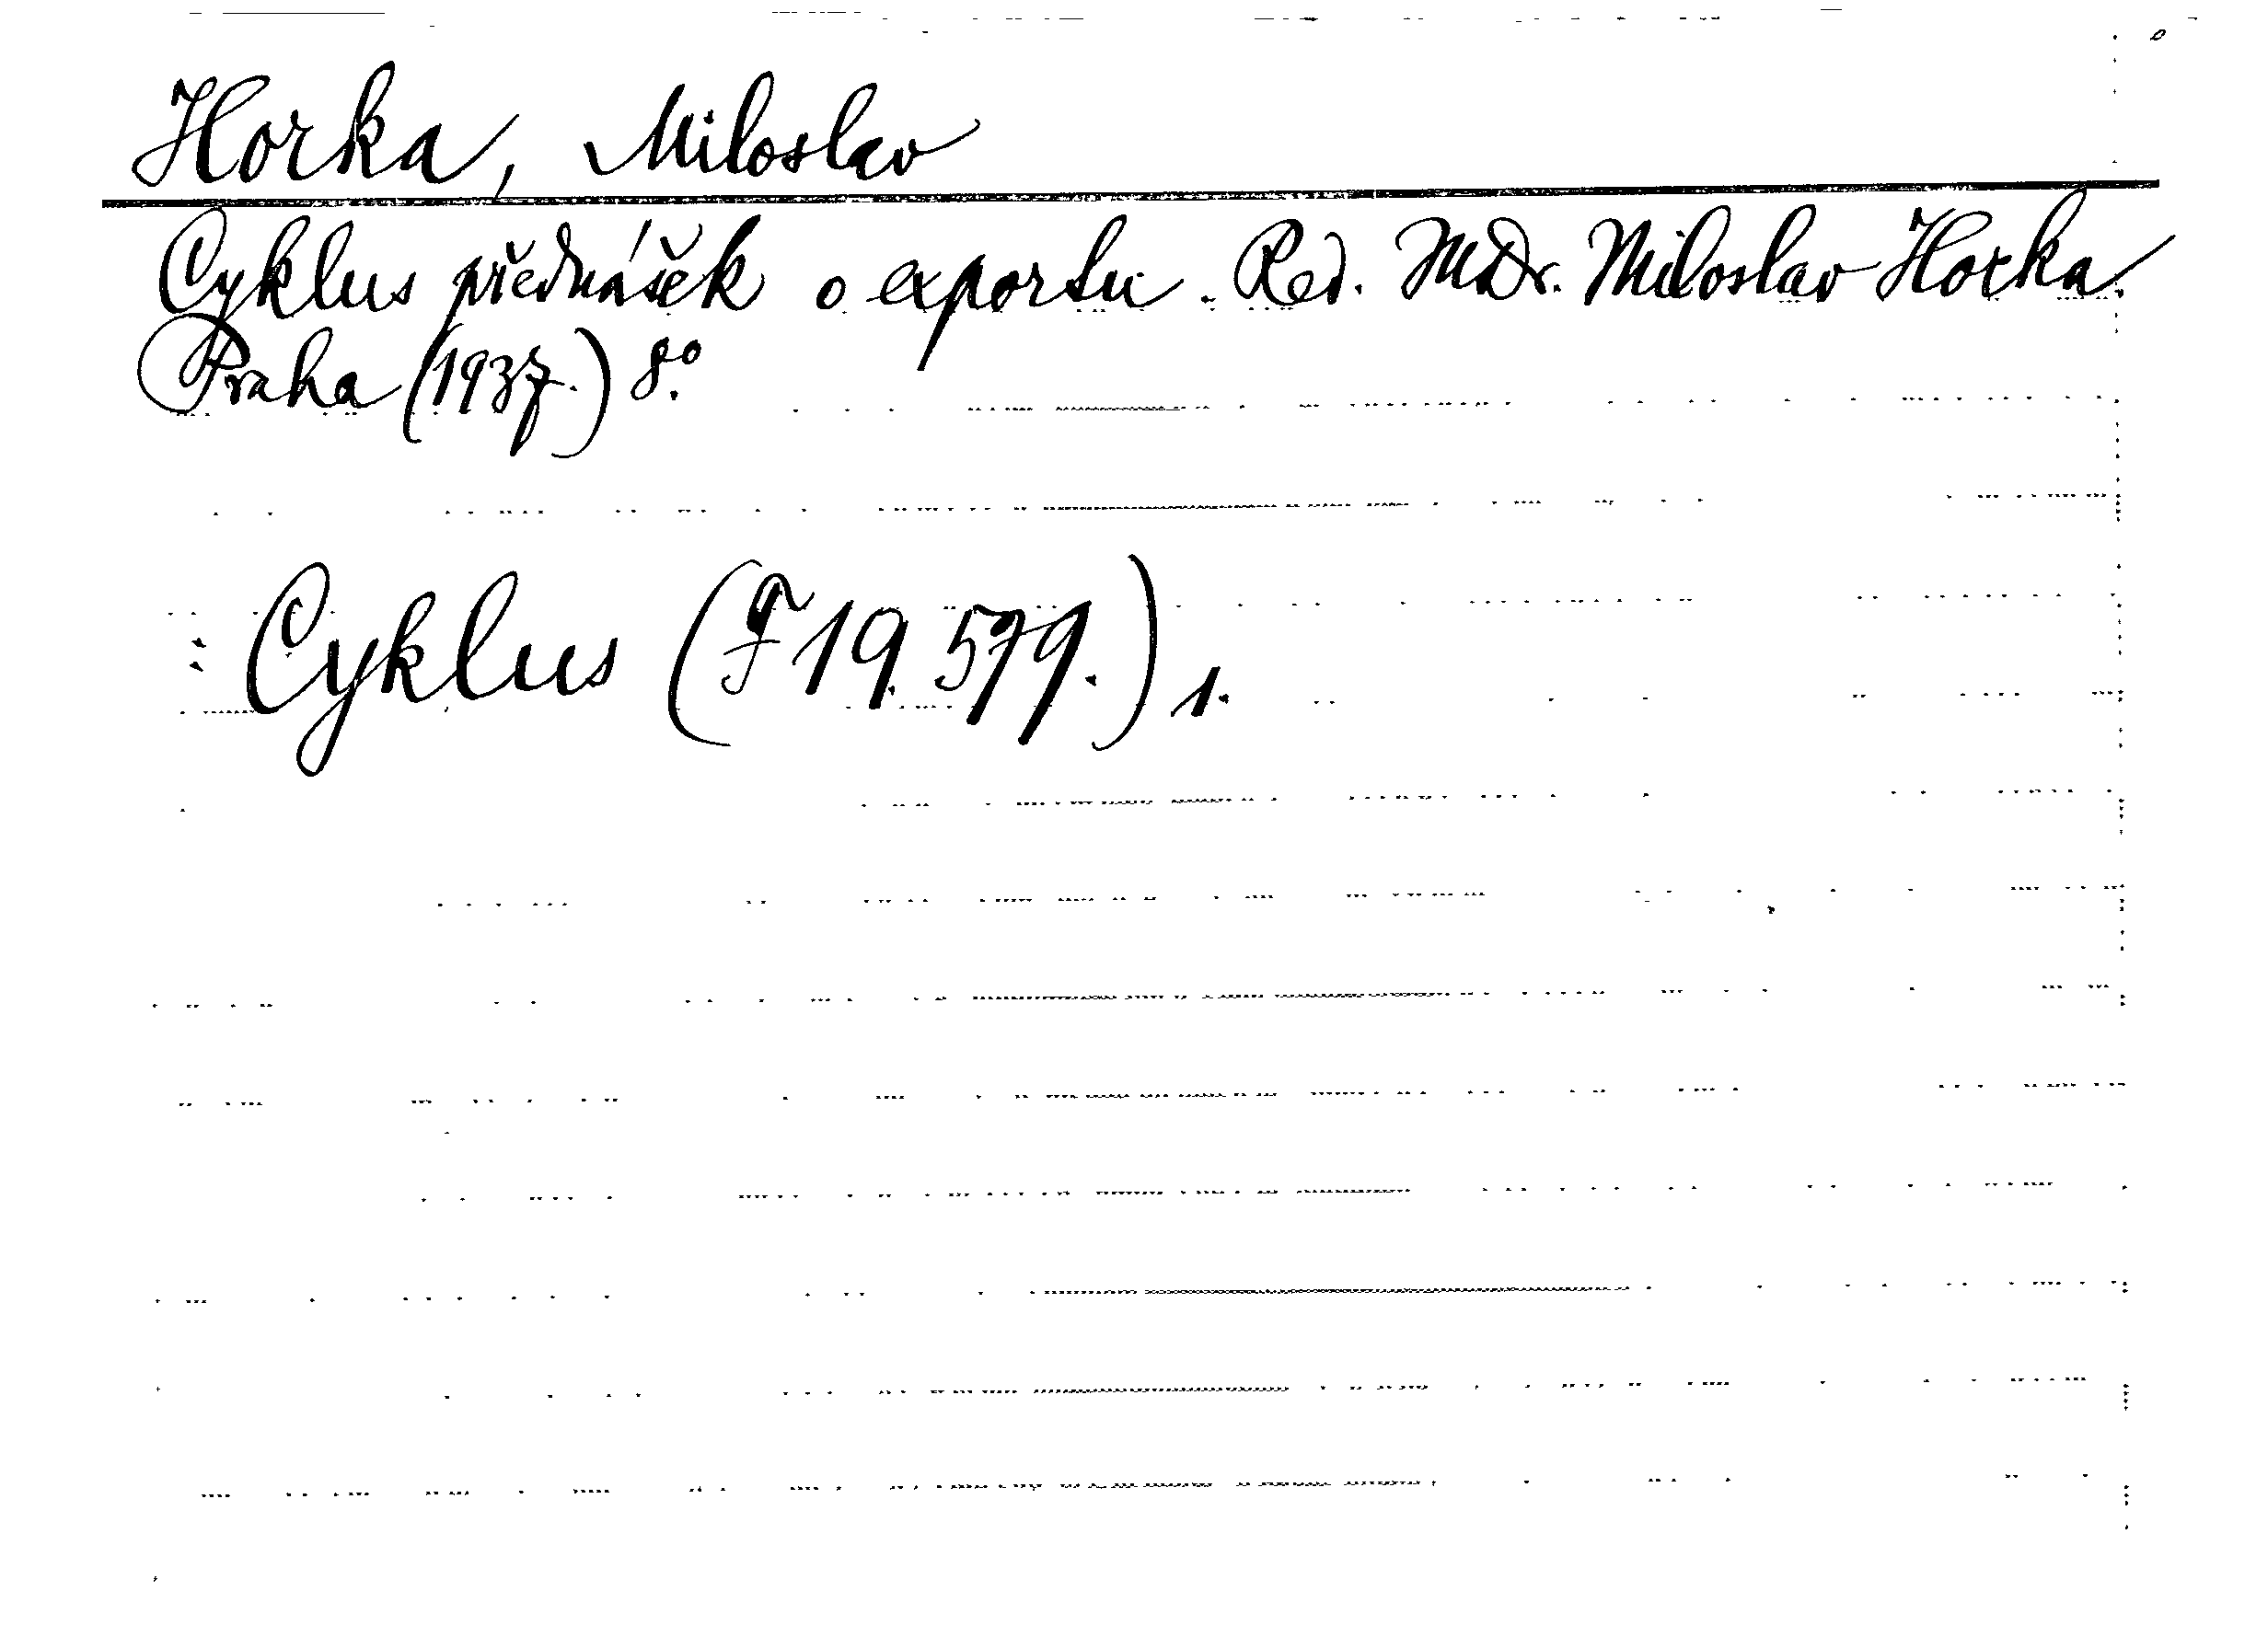 Horka, Miloslav
Cyklus přednášek o exportu. Red. MDr. Miloslav Horka.
Praha (1937.) 8.°
: Cyklus (F 19.579.) 1.